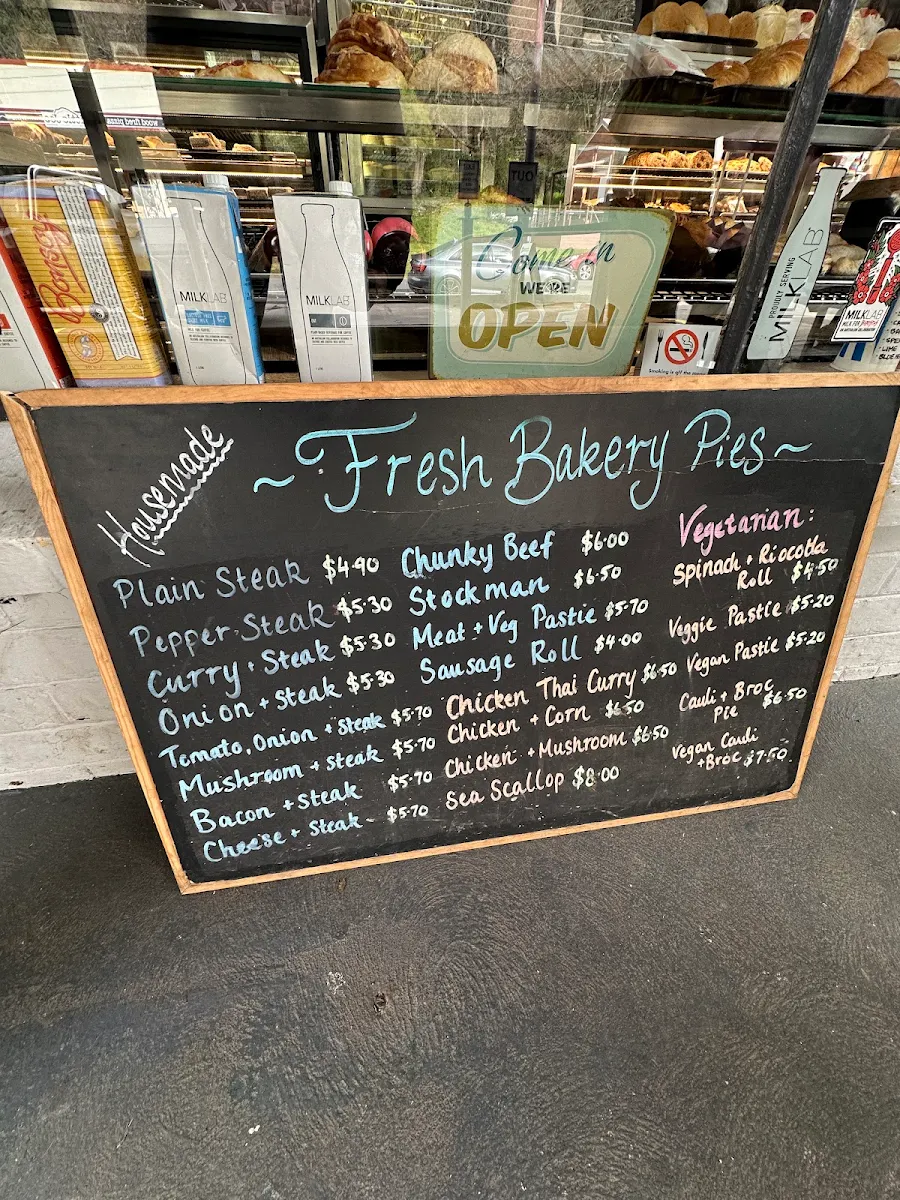 Bonsoy
MILKLAB
MILKLAB
OUT
Come in
WE'RE
OPEN
PROUDLY SERVING
MILKLAB
MILKLAB
Housemade
~Fresh Bakery Pies~
Plain Steak $4.90
Pepper Steak $5.30
Curry + Steak $5.30
Onion + Steak $5.30
Tomato, Onion + Steak $5.70
Mushroom + Steak $5.70
Bacon + Steak $5.70
Cheese + Steak - $5.70
Chunky Beef $6.00
Stockman $6.50
Meat + Veg Pastie $5.70
Sausage Roll $4.00
Chicken Thai Curry $6.50
Chicken + Corn $6.50
Chicken + Mushroom $6.50
Sea Scallop $8.00
Vegetarian:
Spinach + Riocotta
Roll $4.50
Veggie Pastie $5.20
Vegan Pastie $5.20
Cauli + Broc
Pie $6.50
Vegan Cauli
+Broc $7.50